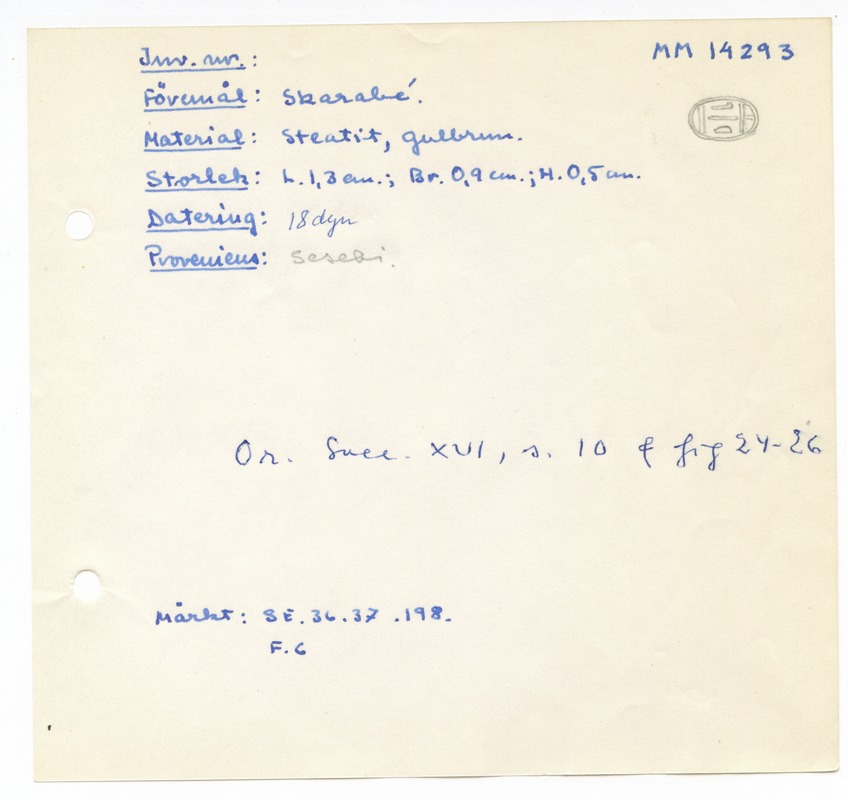 Inv. nr.: MM 14293
Föremål: Skarabé.
Material: Steatit, gulbrun.
Storlek: L. 1,3 cm.; Br. 0,9 cm.; H. 0,5 cm.
Datering: 18 dyn
Proveniens: Sesebi.
Or. Suec. XVI, s. 10 f fig 24-26
Märkt: SE. 36.37 .198.
F. 6